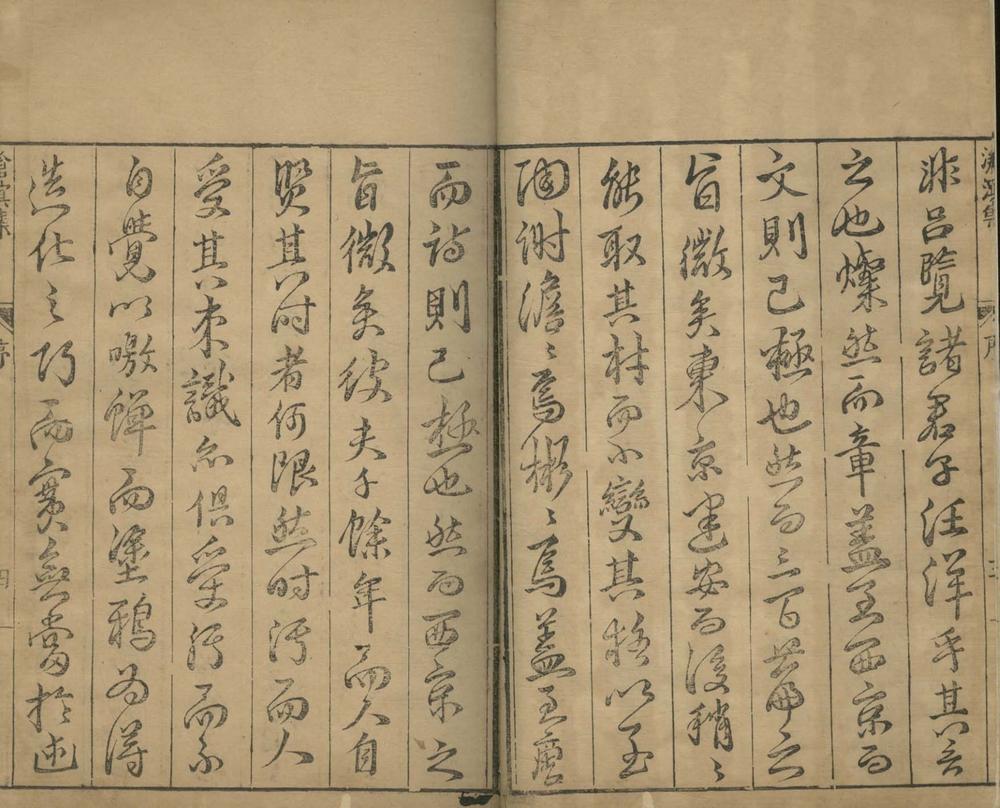 非呂覽諸君子汪洋乎其言
之也燦然而章蓋至西京而
文則已極也然而三百篇之
旨微矣東京建安而後稍〻
能取其材而小變其格以至
陶謝澹〻焉彬〻焉蓋至唐
而詩則已極也然而西京之
旨微矣彼夫千餘年而人自
賢其時者何限然時汚而人
受其汚識亦俱受汚而不
自覺以噭蟬而塗鴉為得
造化之巧而實無當於述
滄溟集 序 四